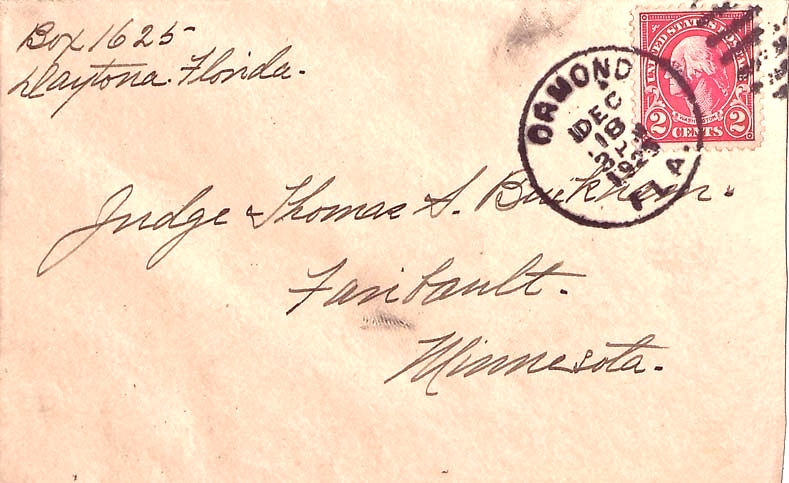 Box 1625
Daytona. Florida.
UNITED STATES POSTAGE
WASHINGTON
2 CENTS 2
ORMOND
DEC
18
FLA.
Judge Thomas S. Buckham.
Faribault.
Minnesota.